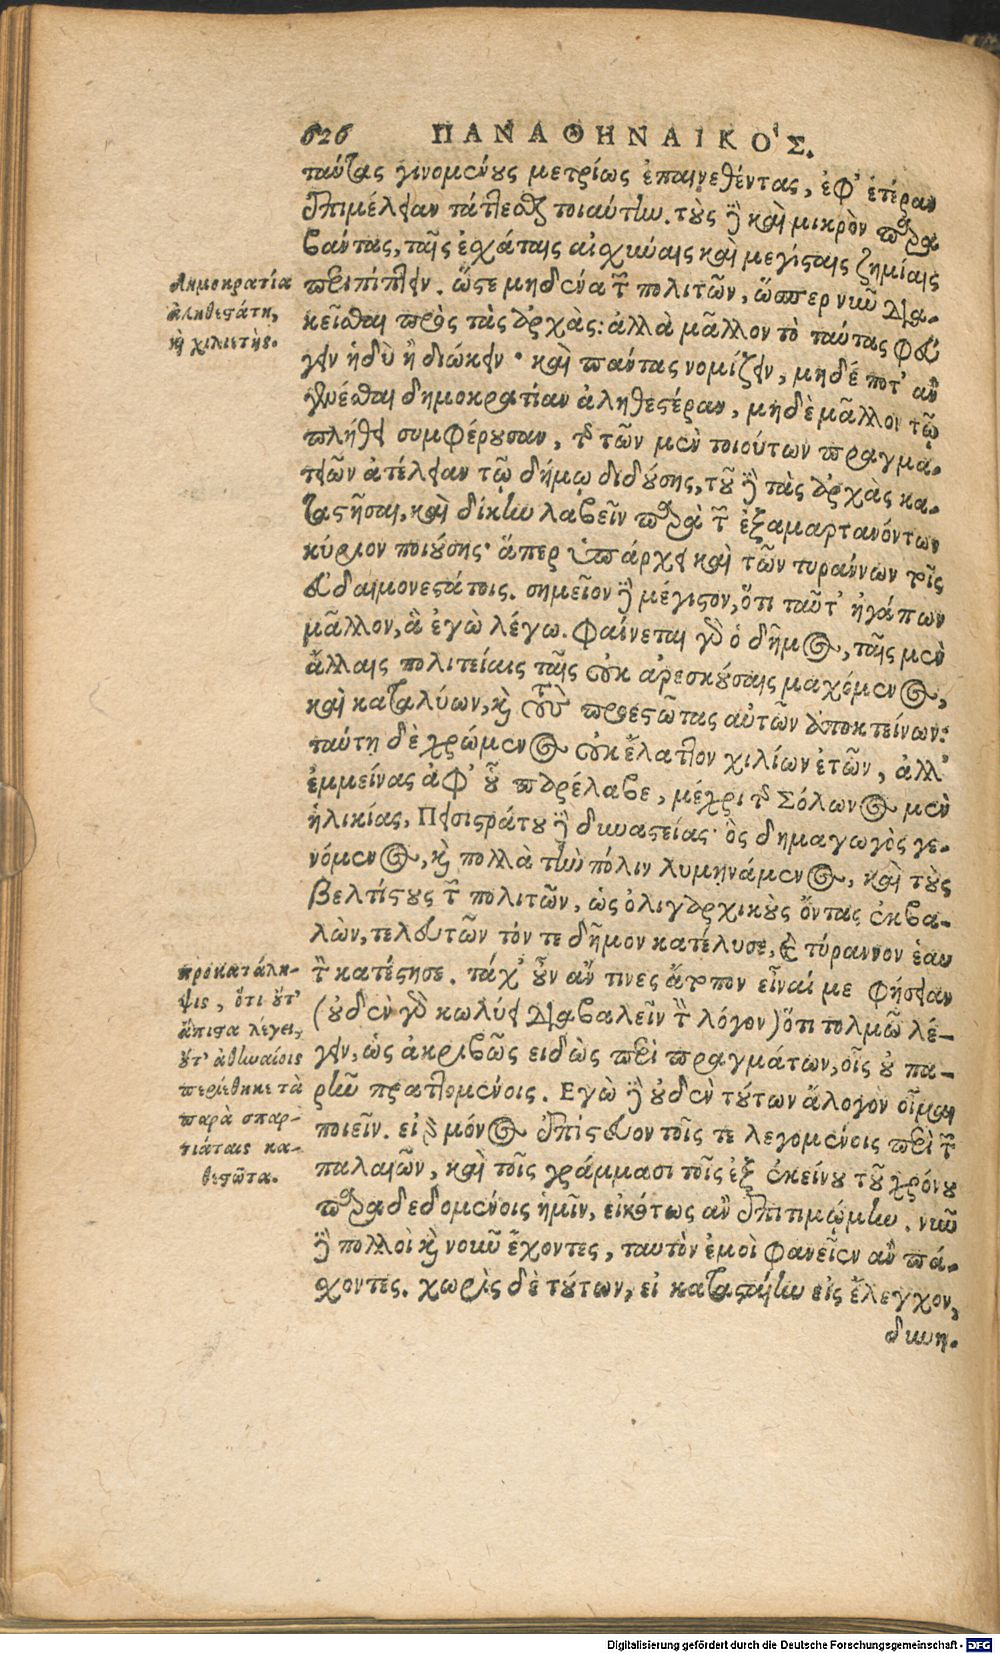 626 ΠΑΝΑΘΗΝΑΙΚΟ'Σ.
ταύτας γινομένους μετρίως ἐπαινεθέντας, ἐφ' ἑτέραν
ἐπιμέλειαν τάττεσθαι τοιαύτην. τοὺς δὲ καὶ μικρὸν παρα
βάντας, ταῖς ἐσχάταις αἰσχύναις καὶ μεγίσταις ζημίαις
περιπίπτειν. ὥστε μηδένα τῶν πολιτῶν, ὥσπερ νῦν δια-
κεῖσθαι πρὸς τὰς ἀρχὰς: ἀλλὰ μᾶλλον τὸ ταύτας φεύ
γειν ἠδὺ ἢ διώκειν· καὶ πάντας νομίζειν, μηδέ ποτ' ἂν
γενέσθαι δημοκρατίαν ἀληθεστέραν, μηδὲ μᾶλλον τῷ
πλήθει συμφέρουσαν, τῆς τῶν μὲν τοιούτων πραγμα-
τειῶν ἀτέλειαν τῷ δήμῳ διδούσης, τοῦ δὲ τὰς ἀρχὰς κα-
ταστῆσαι, καὶ δίκην λαβεῖν παρὰ τῶν ἐξαμαρτανόντων
κύριον ποιούσης· ἅπερ ὑπάρχει καὶ τῶν τυράννων τοῖς
εὐδαιμονεστάτοις. σημεῖον δὲ μέγιστον, ὅτι ταῦτ' ἠγάπων
μᾶλλον, ἃ ἐγὼ λέγω. φαίνεται γὰρ ὁ δῆμος, ταῖς μὲν
ἄλλαις πολιτείαις ταῖς οὐκ ἀρεσκούσαις μαχόμενος,
καὶ καταλύων, καὶ τοὺς προεστῶτας αὐτῶν ἀποκτείνων:
ταύτῃ δὲ χρώμενος οὐκ ἔλαττον χιλίων ἐτῶν, ἀλλ'
ἐμμείνας ἀφ' οὗ παρέλαβε, μέχρι τῆς Σόλωνος μὲν
ἡλικίας, Πεισιστράτου δὲ δυναστείας· ὃς δημαγωγὸς γε-
νόμενος, καὶ πολλὰ τὴν πόλιν λυμηνάμενος, καὶ τοὺς
βελτίστους τῶν πολιτῶν, ὡς ὀλιγαρχικοὺς ὄντας ἐκβα-
λὼν, τελευτῶν τόν τε δῆμον κατέλυσε, καὶ τύραννον ἑαυ
τὸν κατέστησε. τάχ' οὖν ἄν τινες ἄτοπον εἶναί με φήσειαν
(οὐδὲν γὰρ κωλύει διαβαλεῖν τὸν λόγον) ὅτι τολμῶ λέ-
γειν, ὡς ἀκριβῶς εἰδὼς περὶ πραγμάτων, οἷς οὐ πα-
ρῆν πραττομένοις. Ἐγὼ δὲ οὐδὲν τούτων ἄλογον οἶμαι
ποιεῖν. εἰ μὲν γὰρ μόνος ἐπίστευον τοῖς τε λεγομένοις περὶ τῶν
παλαιῶν, καὶ τοῖς γράμμασι τοῖς ἐξ ἐκείνου τοῦ χρόνου
παραδεδομένοις ἡμῖν, εἰκότως ἂν ἐπιτιμῴμην. νῦν
δὲ πολλοὶ καὶ νοῦν ἔχοντες, ταυτὸν ἐμοὶ φανεῖεν ἂν πά-
σχοντες. χωρὶς δὲ τούτων, εἰ κατασταίην εἰς ἔλεγχον,
δυνη-
Δημοκρατία
ἀληθεστάτη,
καὶ χιλιετής.
προκατάλη-
ψις, ὅτι οὔτ'
ἄπιστα λέγει,
οὔτ' ἀθηναίοις
περιέθηκε τὰ
παρὰ σπαρ-
τιάταις κα-
θεστῶτα.
Digitalisierung gefördert durch die Deutsche Forschungsgemeinschaft - DFG